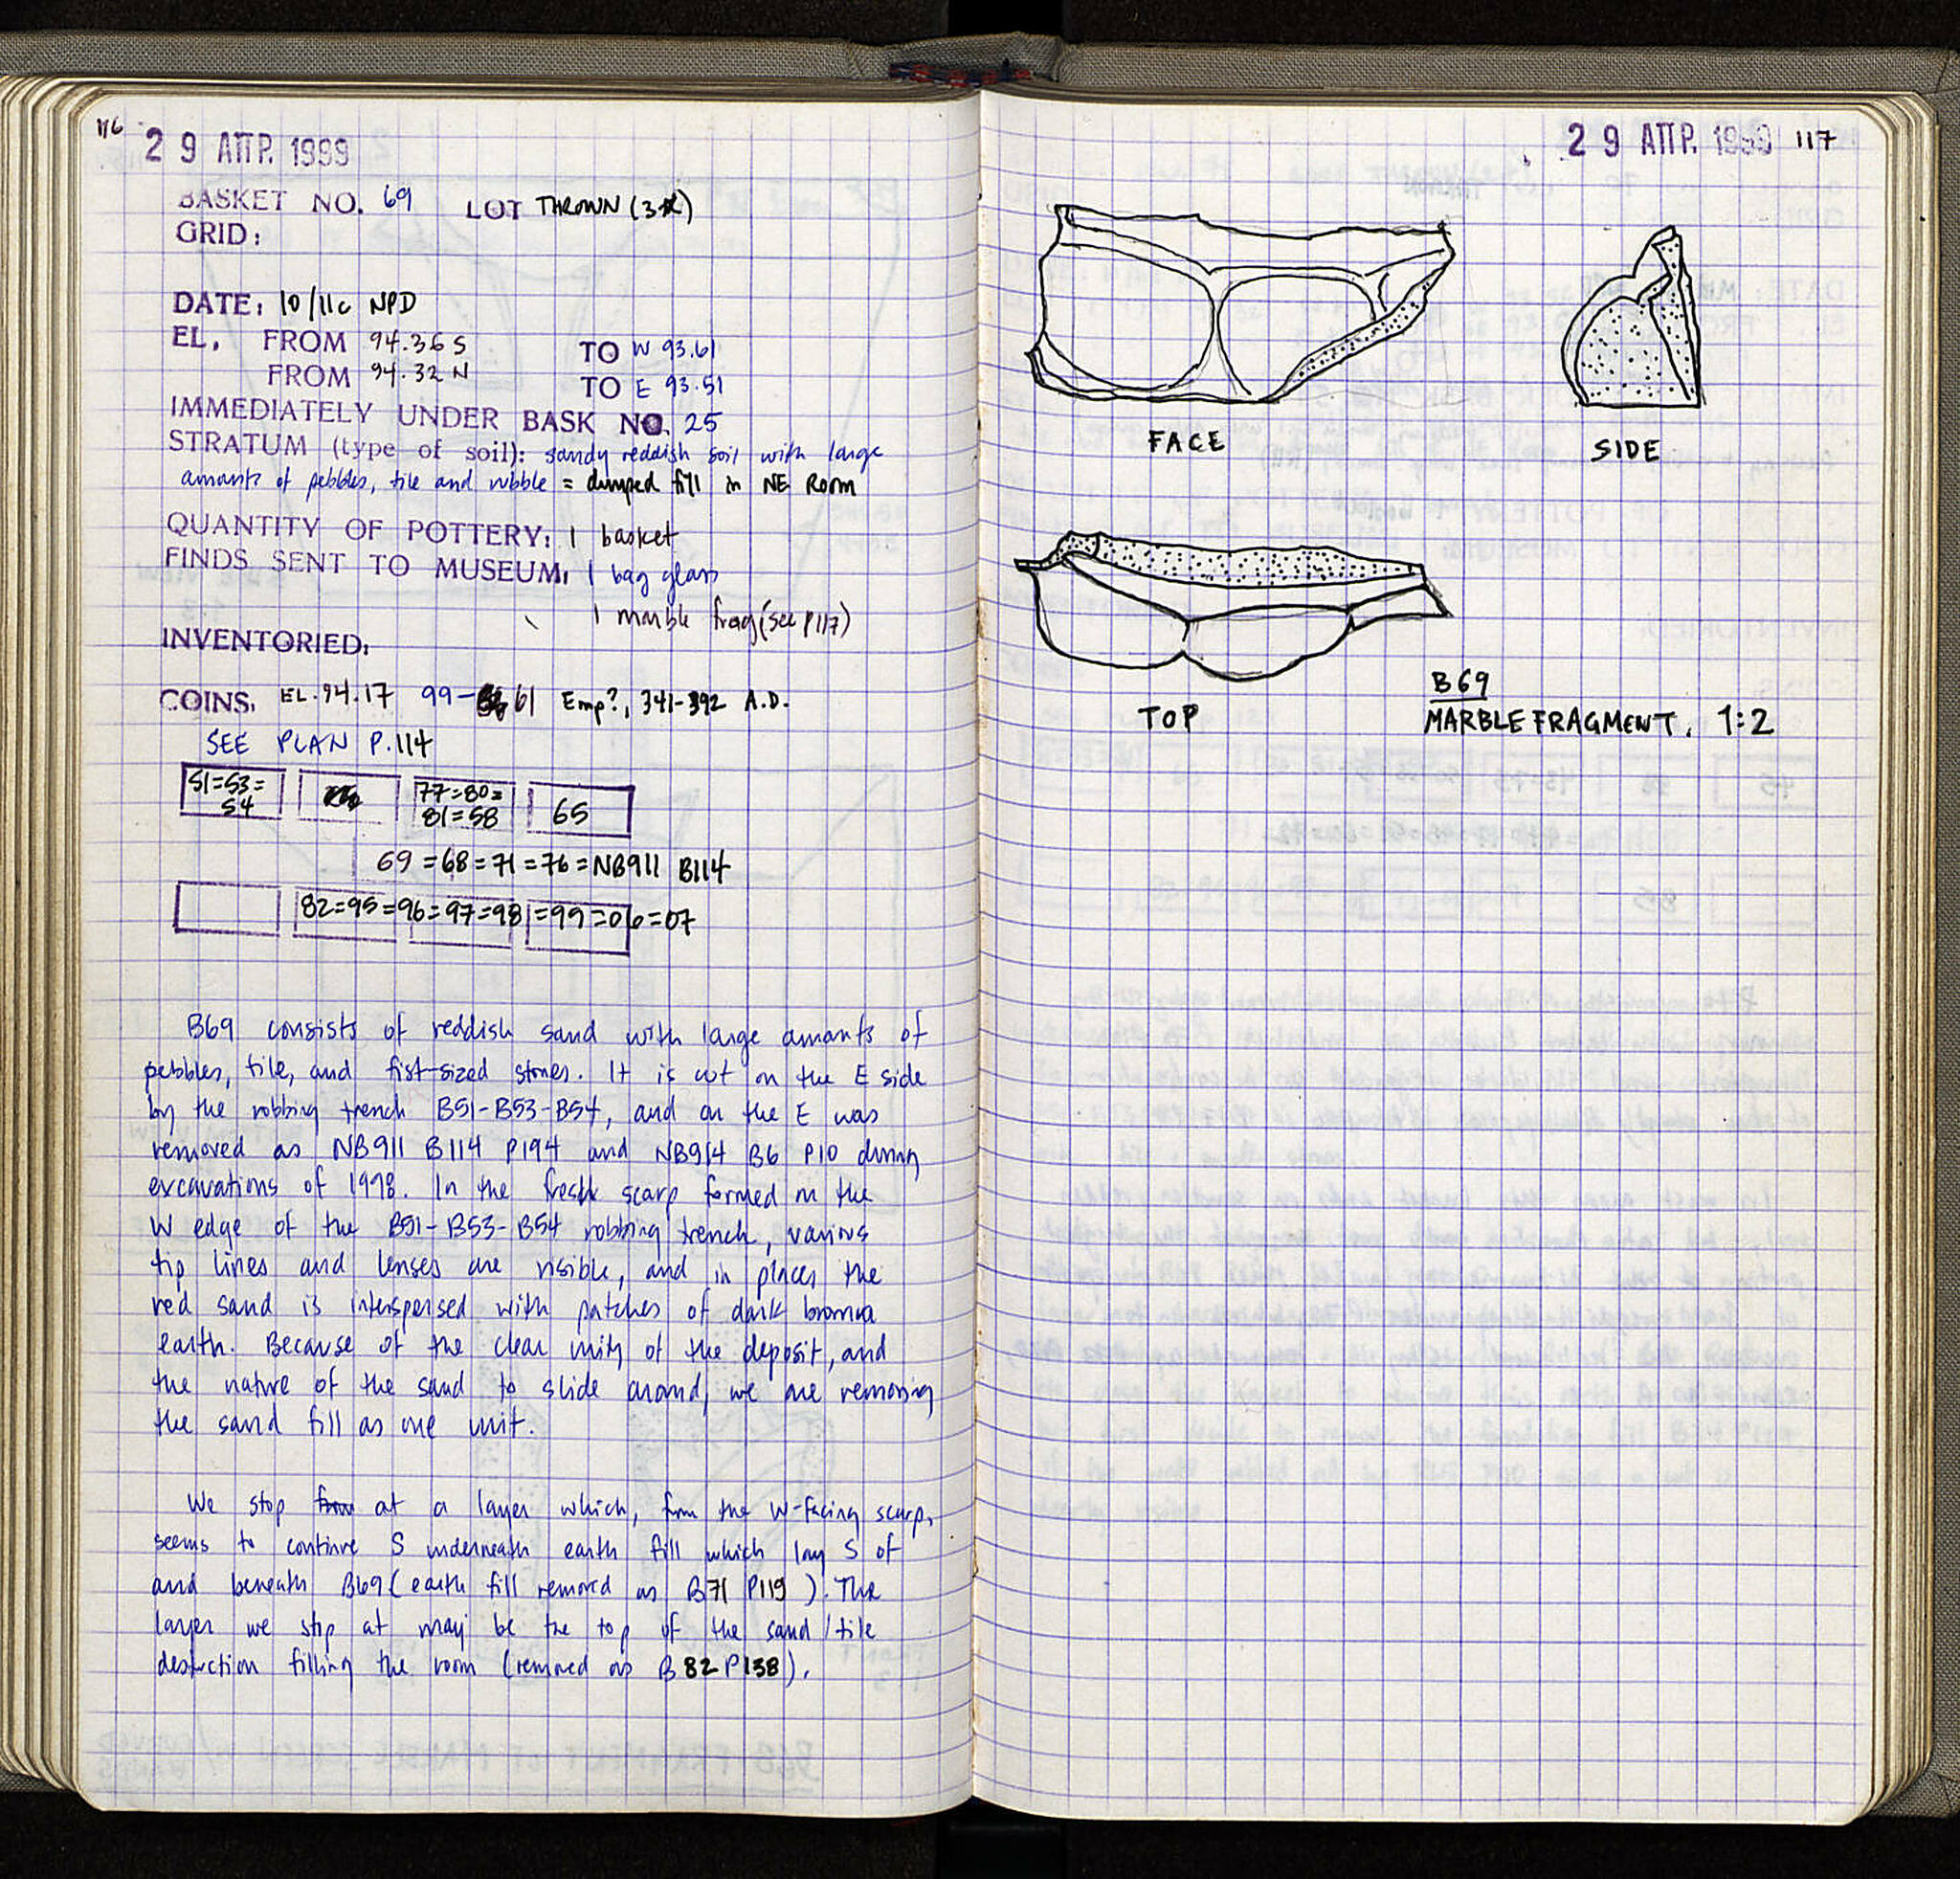 116
29 ΑΠΡ. 1999
BASKET NO. 69 LOT THROWN (3)
GRID:
DATE: 10/11c NPD
EL. FROM 94.36 S TO W 93.61
FROM 94.32 N TO E 93.51
IMMEDIATELY UNDER BASK NO. 25
STRATUM (type of soil): sandy reddish soil with large
amants of pebbles, tile and rubble = dumped fill in NE Room
QUANTITY OF POTTERY: 1 basket
FINDS SENT TO MUSEUM: 1 bag glass
1 marble frag (see P117)
INVENTORIED:
COINS: EL. 94.17 99-61 Emp?, 341-392 A.D.
SEE PLAN P.114
51=53=
54
77=80=
81=58
65
69=68=71=76=NB911 B114
82=95=96=97=98=99=06=07
B69 consists of reddish sand with large amants of
pebbles, tile, and fist-sized stones. It is cut on the E side
by the robbing trench B51-B53-B54, and on the E was
removed as NB911 B114 P194 and NB914 B6 P10 during
excavations of 1998. In the fresh scarp formed on the
W edge of the B51-B53-B54 robbing trench, various
tip lines and lenses are visible, and in places the
red sand is interspersed with patches of dark brown
earth. Because of the clear unity of the deposit, and
the nature of the sand to slide around, we are removing
the sand fill as one unit.
We stop from at a layer which, from the W-facing scarp,
seems to continue S underneath earth fill which lay S of
and beneath B69 (earth fill removed as B71 P119). The
layer we stop at may be the top of the sand/tile
destruction filling the room (removed as B82 P138).
29 ΑΠΡ. 1999 117
FACE
SIDE
TOP
B69
MARBLE FRAGMENT. 1:2